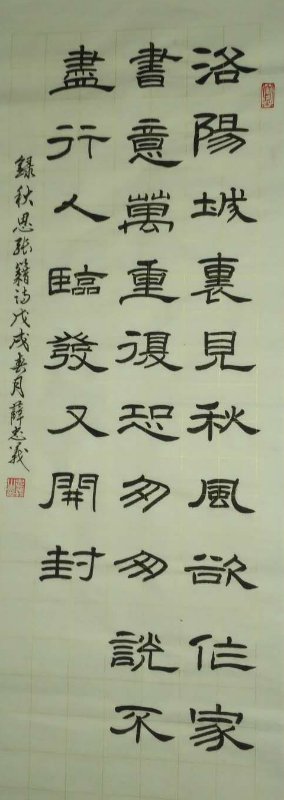 洛陽城裏見秋風欲作家
書意萬重復恐匆匆說不
盡行人臨發又開封
録秋思張籍詩戊戌春月薛志義